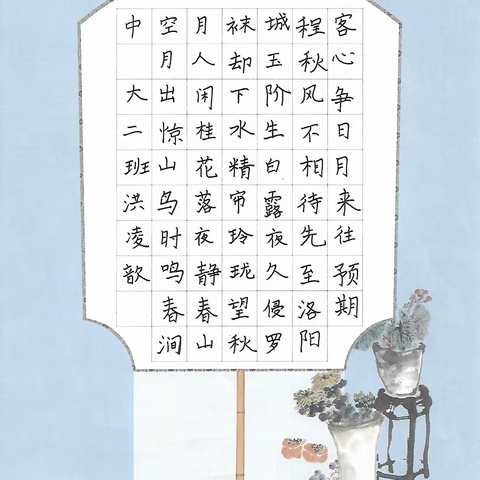 客心争日月来往预期
程秋风不相待先至洛阳
城玉阶生白露夜久侵罗
袜却下水精帘玲珑望秋
月人闲桂花落夜静春山
空月出惊山鸟时鸣春涧
中 大二班洪凌歆